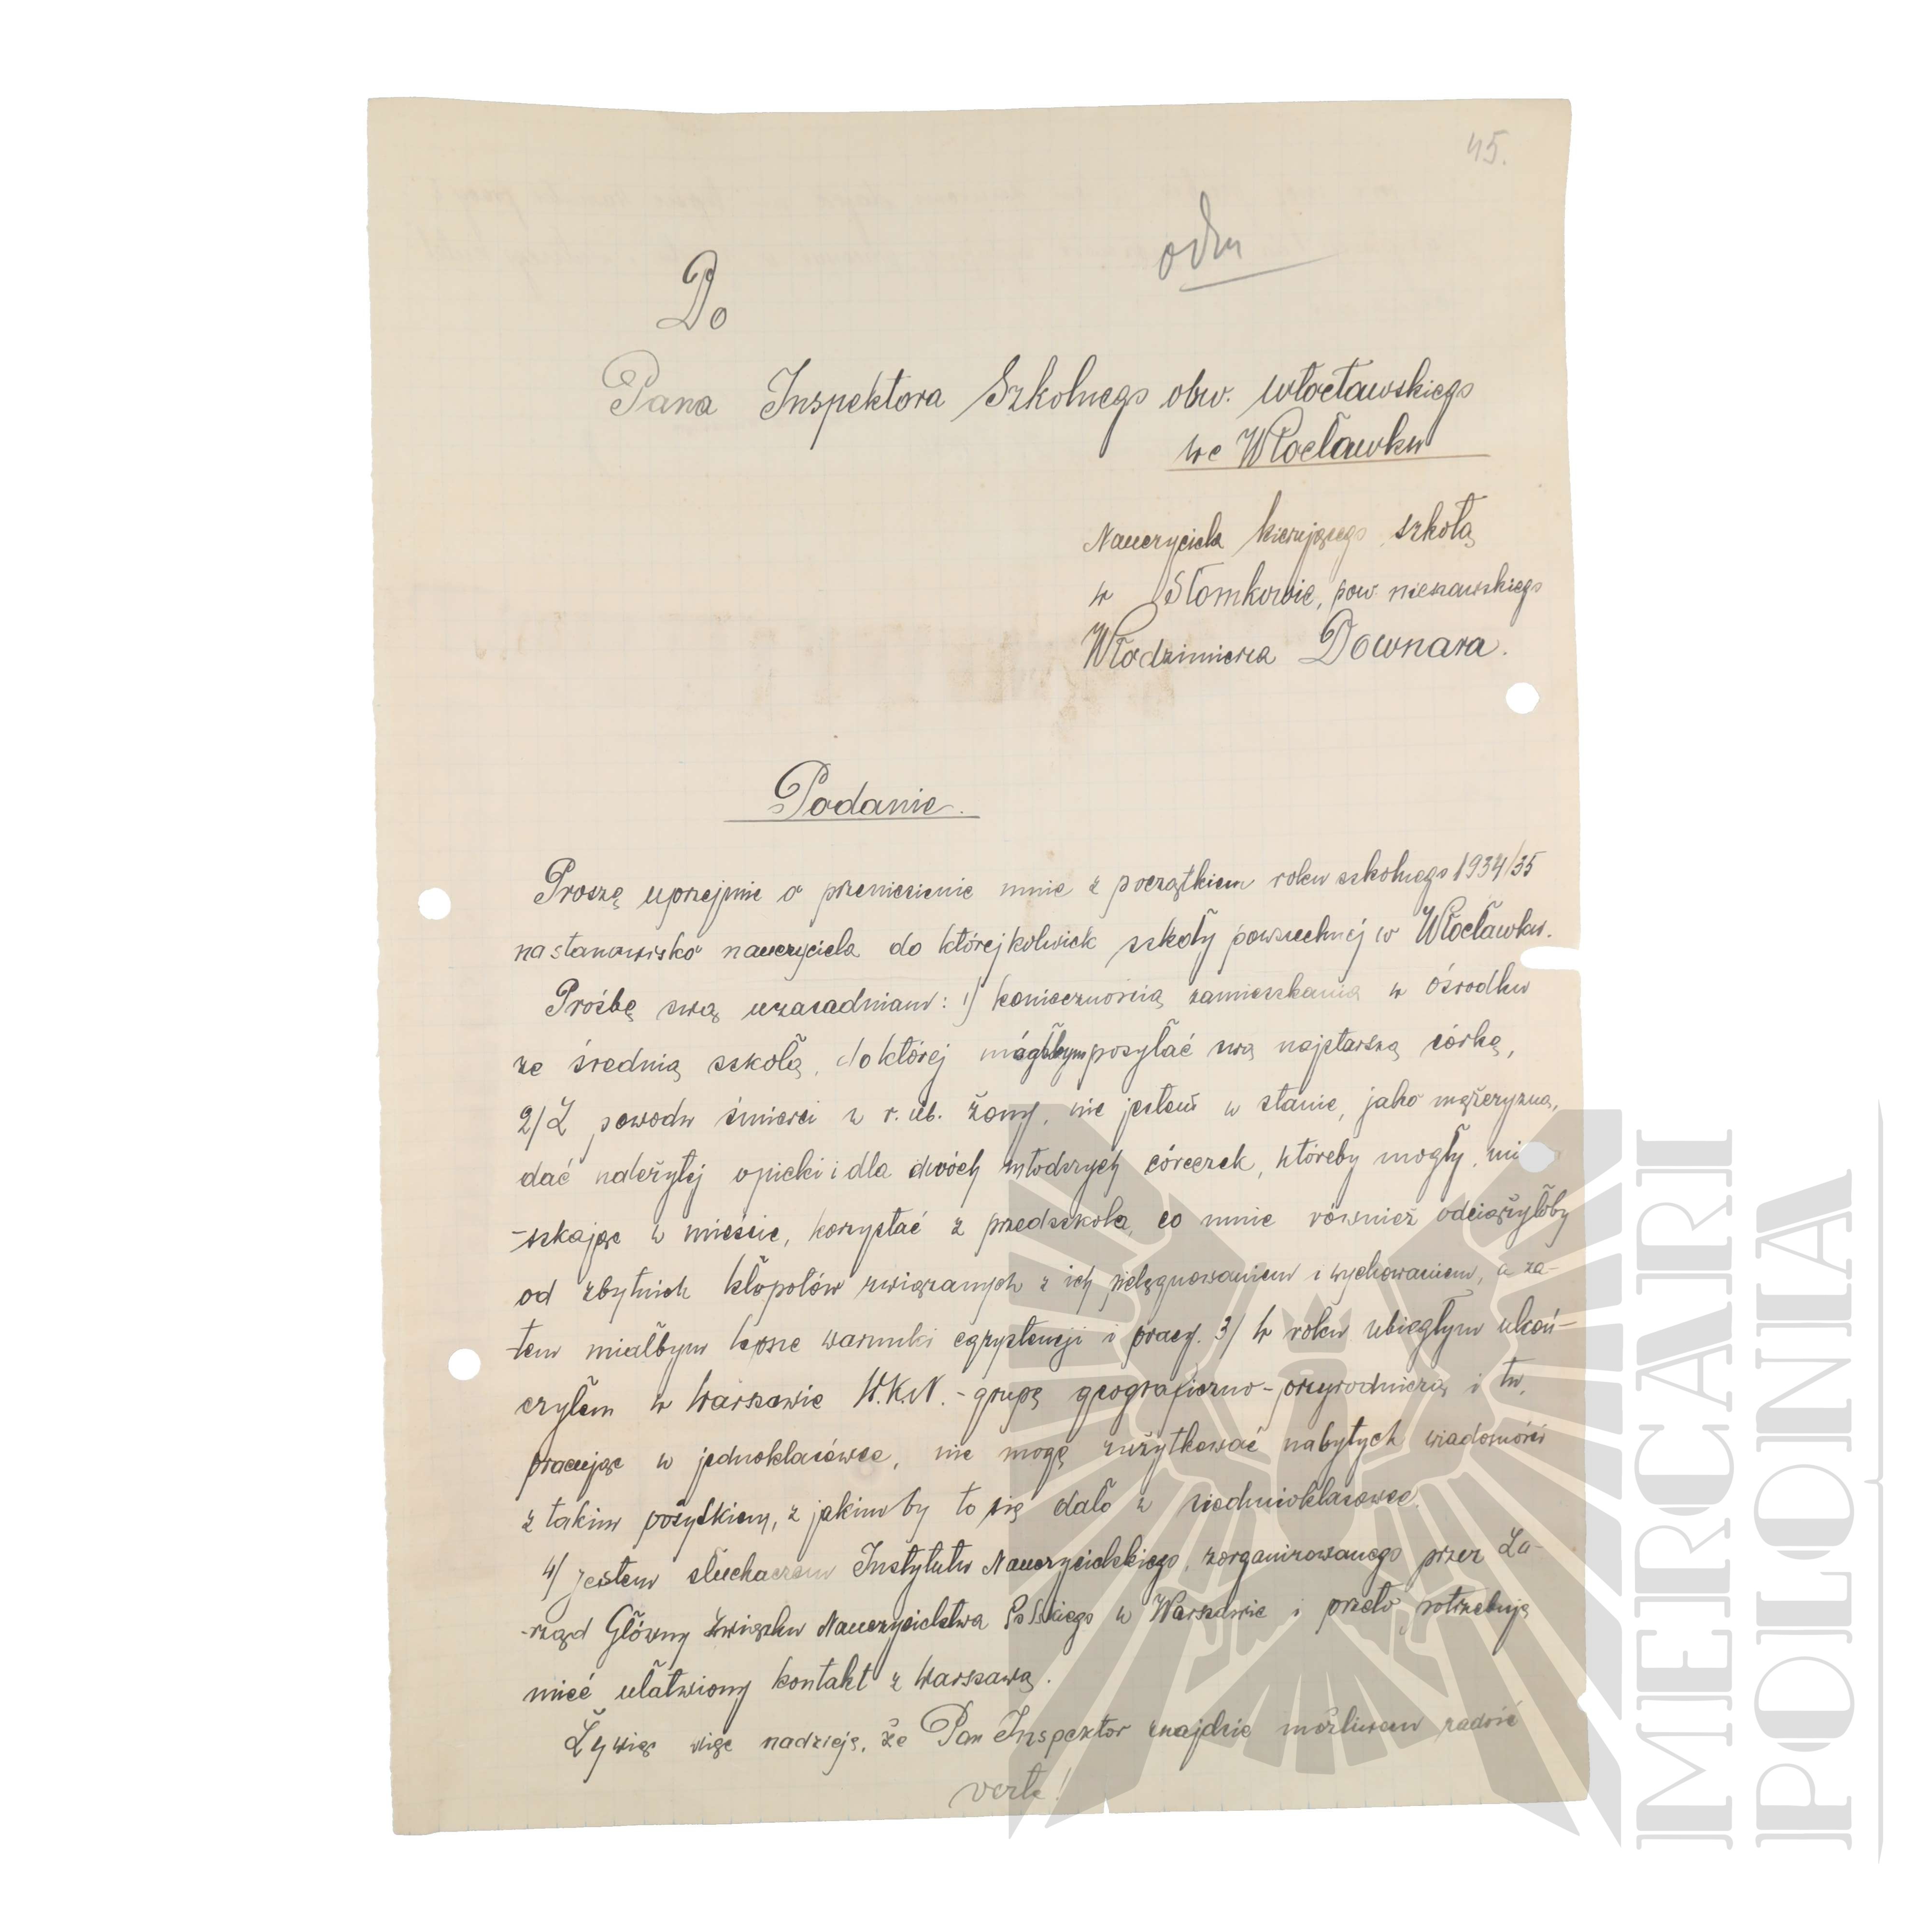 45.
odm
Do
Pana Inspektora Szkolnego obw. włocławskiego
we Włocławku
Nauczyciela kierującego szkołą
w Słomkowie, pow. nieszawskiego
Włodzimierza Downara.
Podanie.
Proszę uprzejmie o przeniesienie mnie z początkiem roku szkolnego 1934/35
na stanowisko nauczyciela do którejkolwiek szkoły powszechnej w Włocławku.
Prośbę swą uzasadniam: 1) koniecznością zamieszkania w ośrodku
ze średnią szkołą, do której mógłbym posyłać swą najstarszą córkę,
2/ Z powodu śmierci w r. ub. żony, nie jestem w stanie, jako mężczyzna,
dać należytej opieki i dla dwóch młodszych córeczek, któreby mogły, mi
-szkając w mieście, korzystać z przedszkola, co mnie również odciążyłoby
od zbytnich kłopotów związanych z ich pielęgnowaniem i wychowaniem, a za-
-tem miałbym lepsze warunki egzystencji i pracy. 3/ W roku ubiegłym ukoń-
czyłem w Warszawie W.K.N. - grupę geograficzno-przyrodniczą i tu,
pracując w jednoklasówce, nie mogę zużytkować nabytych wiadomości
z takim pożytkiem, z jakim by to się dało w siedmioklasowce.
4/ Jestem słuchaczem Instytutu Nauczycielskiego, zorganizowanego przez Za-
-rząd Główny Związku Nauczycielstwa Polskiego w Warszawie i przeto potrzebuję
mieć ułatwiony kontakt z Warszawą.
Żywię więc nadzieję, że Pan Inspektor znajdzie możliwem zadość
verte!
MERCARI
POLONIA